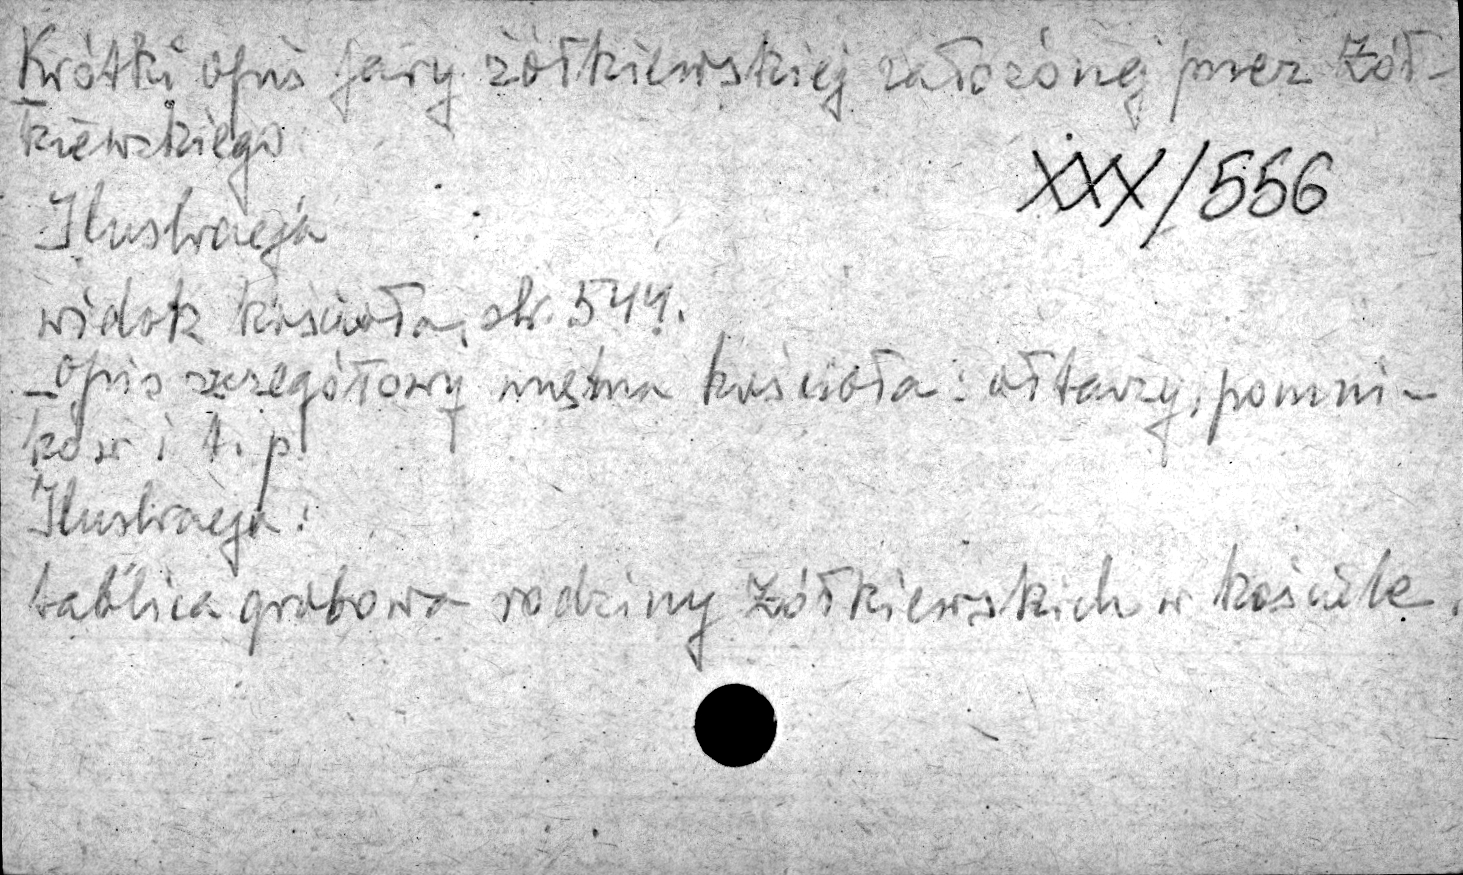 Krótki opis fary żółkiewskiej założonej przez Żół-
kiewskiego
XXX/556
Ilustracja
widok kościoła, str. 544.
Opis szczegółowy wnętrza kościoła: ołtarzy, pomni-
ków i t. p
Ilustracja:
tablica grobowa rodziny Żółkiewskich w kościele.